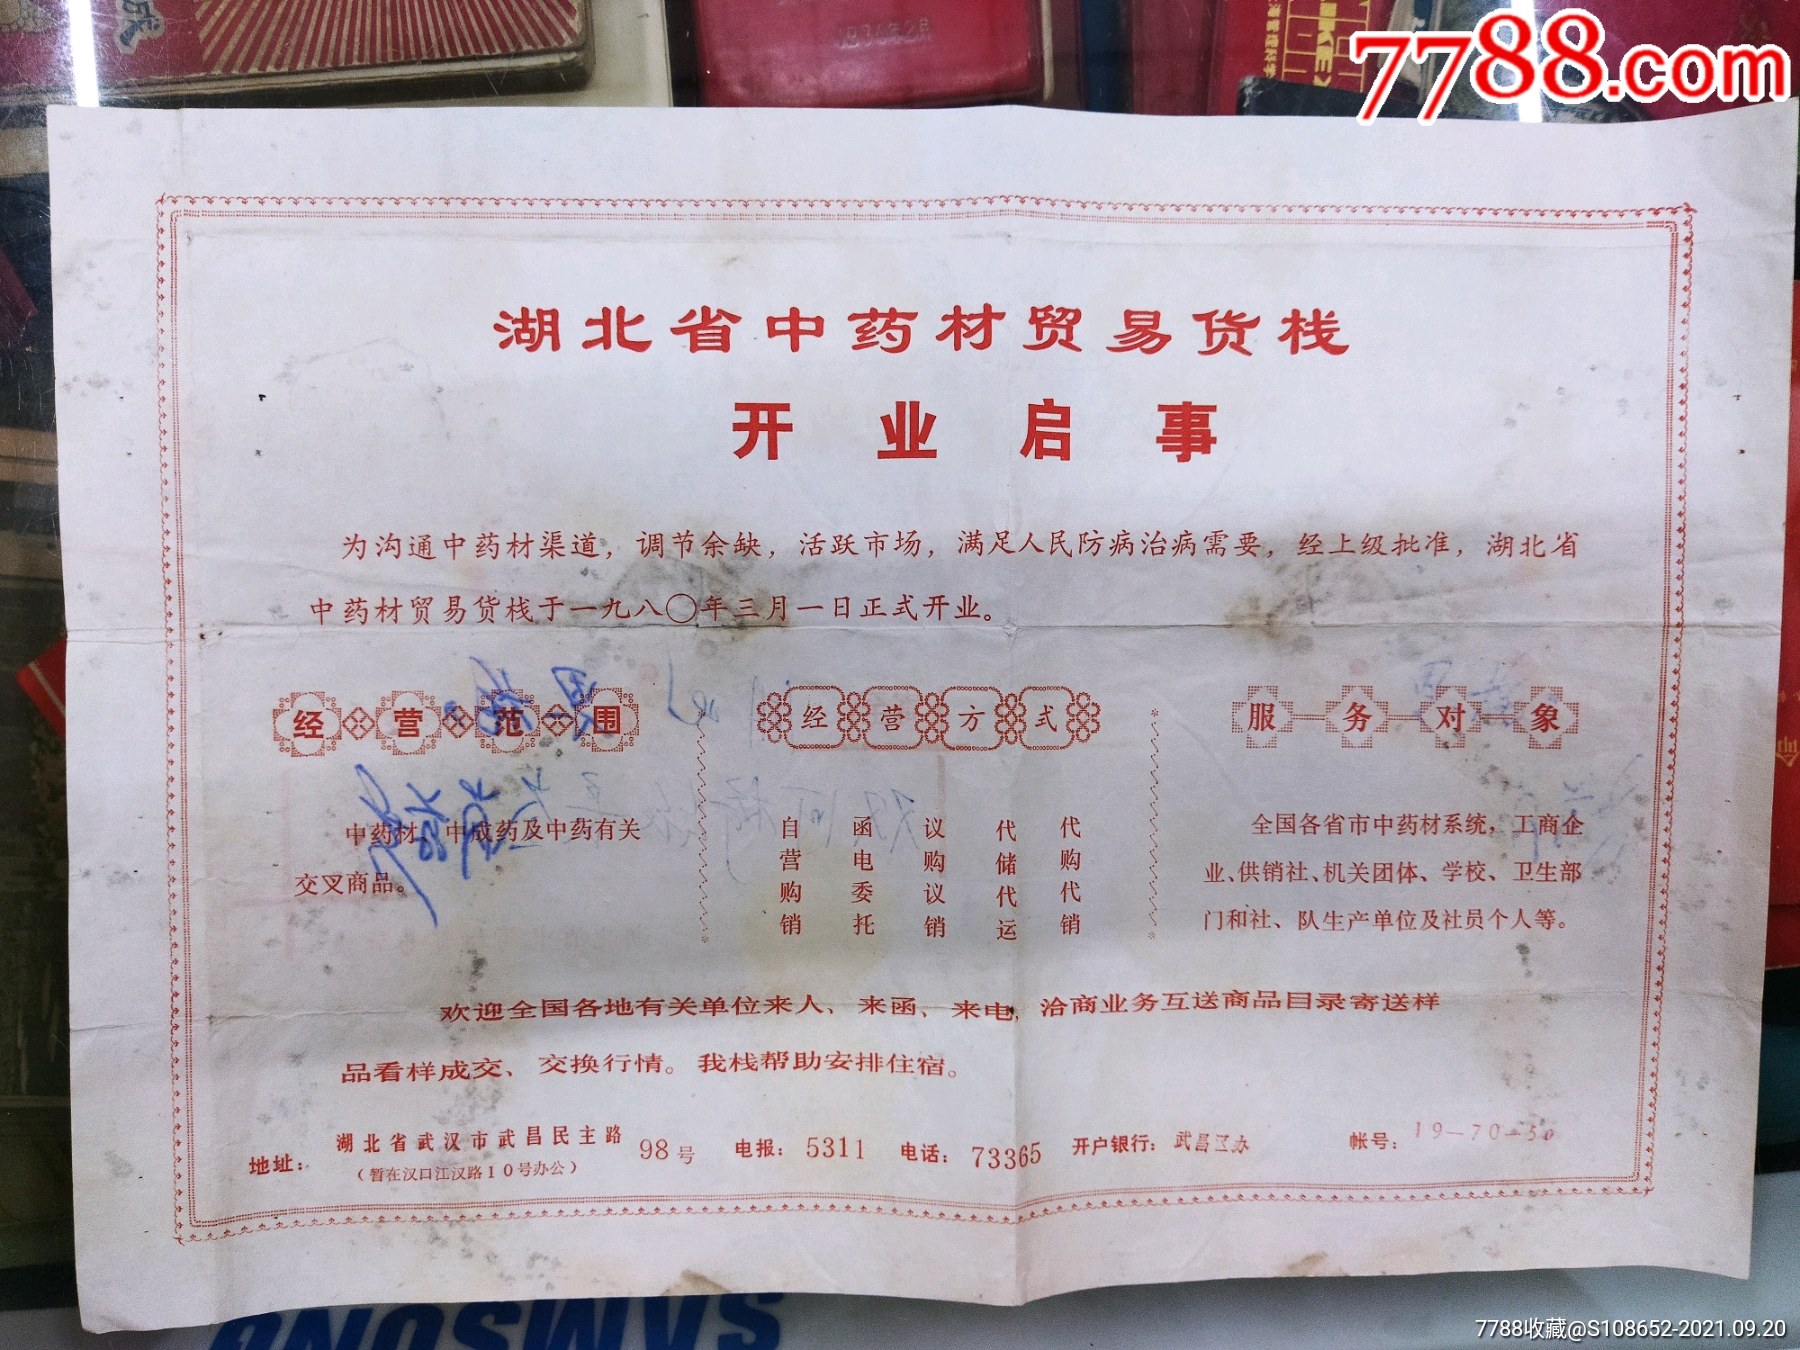 7788.com
湖北省中药材贸易货栈
开业启事
为沟通中药材渠道，调节余缺，活跃市场，满足人民防病治病需要，经上级批准，湖北省
中药材贸易货栈于一九八〇年三月一日正式开业。
经营范围
中药材、中成药及中药有关
交叉商品。
经营方式
自营购销
函电委托
议购议销
代储代运
代购代销
服务对象
全国各省市中药材系统，工商企
业、供销社、机关团体、学校、卫生部
门和社、队生产单位及社员个人等。
欢迎全国各地有关单位来人、来函、来电，洽商业务互送商品目录寄送样
品看样成交、交换行情。我栈帮助安排住宿。
地址：湖北省武汉市武昌民主路 98号 电报：5311 电话：73365 开户银行：武昌区办 帐号：19-70-50
（暂在汉口江汉路10号办公）
SAMSUNG
7788收藏@S108652-2021.09.20